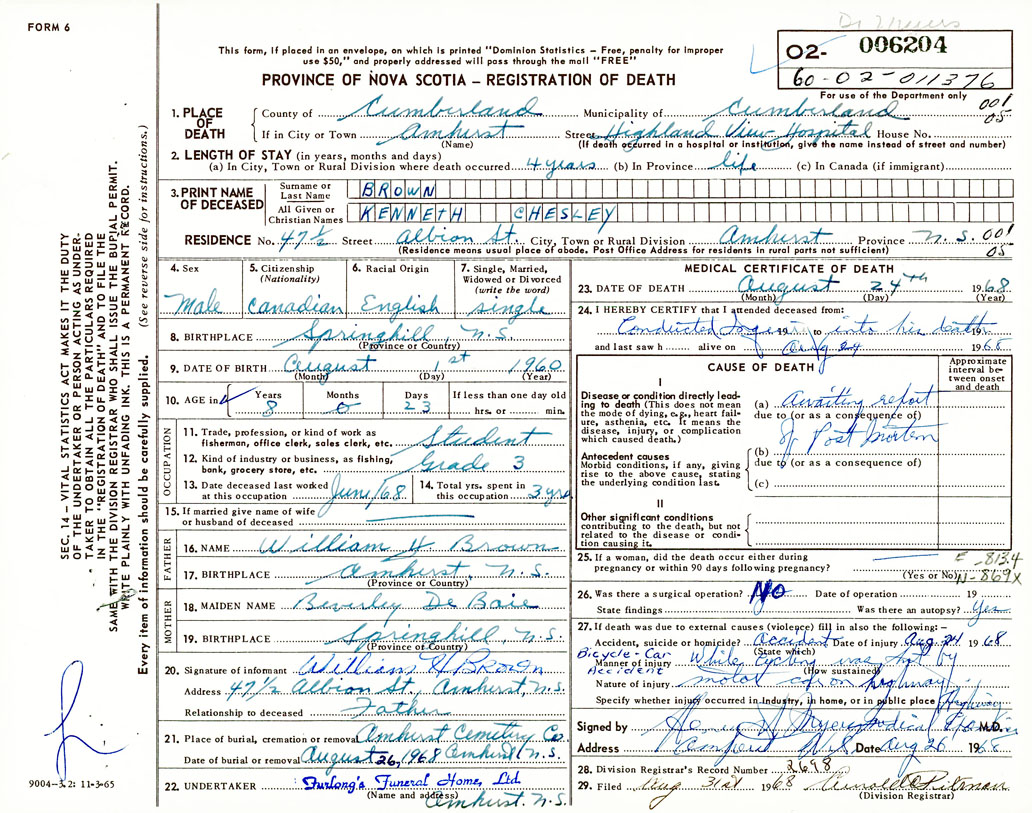 FORM 6
Dr
This form, if placed in an envelope, on which is printed "Dominion Statistics – Free, penalty for improper
use $50," and properly addressed will pass through the mail "FREE"
PROVINCE OF NOVA SCOTIA – REGISTRATION OF DEATH
02- 006204
60-02-011376
For use of the Department only
001
05
1. PLACE OF DEATH
County of Cumberland Municipality of Cumberland
If in City or Town Amherst Street Highland View Hospital House No.
(Name) (If death occurred in a hospital or institution, give the name instead of street and number)
2. LENGTH OF STAY (in years, months and days)
(a) In City, Town or Rural Division where death occurred 4 years (b) In Province life (c) In Canada (if immigrant)
3. PRINT NAME OF DECEASED
Surname or Last Name BROWN
All Given or Christian Names KENNETH CHESLEY
RESIDENCE No. 47½ Street Albion St. City, Town or Rural Division Amherst Province N.S. 001
05
(Residence means usual place of abode. Post Office Address for residents in rural parts not sufficient)
4. Sex Male
5. Citizenship (Nationality) Canadian
6. Racial Origin English
7. Single, Married, Widowed or Divorced (write the word) single
8. BIRTHPLACE Springhill N.S.
(Province or Country)
9. DATE OF BIRTH August 1st 1960
(Month) (Day) (Year)
10. AGE in Years 8 Months 0 Days 23 If less than one day old hrs. or min.
OCCUPATION
11. Trade, profession, or kind of work as fisherman, office clerk, sales clerk, etc. Student
12. Kind of industry or business, as fishing, bank, grocery store, etc. Grade 3
13. Date deceased last worked at this occupation June/68 14. Total yrs. spent in this occupation 3 yrs
15. If married give name of wife or husband of deceased
FATHER
16. NAME William H Brown
17. BIRTHPLACE Amherst, N.S.
(Province or Country)
MOTHER
18. MAIDEN NAME Beverley De Baie
19. BIRTHPLACE Springhill N.S.
(Province or Country)
20. Signature of informant William H Brown
Address 47½ Albion St., Amherst, N.S.
Relationship to deceased Father
21. Place of burial, cremation or removal Amherst Cemetery Co.
Date of burial or removal August 26, 1968 Amherst N.S.
22. UNDERTAKER Furlong's Funeral Home, Ltd
(Name and address) Amherst. N.S.
MEDICAL CERTIFICATE OF DEATH
23. DATE OF DEATH August 24th 1968
(Month) (Day) (Year)
24. I HEREBY CERTIFY that I attended deceased from:
Conducted Inquiry 19 to into his death 19
and last saw h alive on Aug 24 1968
CAUSE OF DEATH
Approximate interval between onset and death
I
Disease or condition directly leading to death (This does not mean the mode of dying, e.g., heart failure, asthenia, etc. It means the disease, injury, or complication which caused death.)
(a) Awaiting report
due to (or as a consequence of)
of Post Mortem
Antecedent causes
Morbid conditions, if any, giving rise to the above cause, stating the underlying condition last.
(b)
due to (or as a consequence of)
(c)
II
Other significant conditions
contributing to the death, but not related to the disease or condition causing it.
25. If a woman, did the death occur either during pregnancy or within 90 days following pregnancy?
(Yes or No)
E-813.4
N-869X
26. Was there a surgical operation? No Date of operation 19
State findings Was there an autopsy? Yes
27. If death was due to external causes (violence) fill in also the following:–
Accident, suicide or homicide? Accident Date of injury Aug 24 1968
(State which)
Bicycle - Car Accident
Manner of injury While cycling was hit by
(How sustained)
Nature of injury motor car on highway
Specify whether injury occurred in industry, in home, or in public place Highway
Signed by M.D.
Address Amherst N.S. Date Aug 26 1968
28. Division Registrar's Record Number 2698
29. Filed Aug 31st 1968
(Division Registrar)
SEC. 14 – VITAL STATISTICS ACT MAKES IT THE DUTY
OF THE UNDERTAKER OR PERSON ACTING AS UNDER-
TAKER TO OBTAIN ALL THE PARTICULARS REQUIRED
IN THE "REGISTRATION OF DEATH" AND TO FILE THE
SAME WITH THE DIVISION REGISTRAR WHO SHALL ISSUE THE BURIAL PERMIT.
WRITE PLAINLY WITH UNFADING INK. THIS IS A PERMANENT RECORD.
Every item of information should be carefully supplied. (See reverse side for instructions.)
9004-3.2: 11-3-65